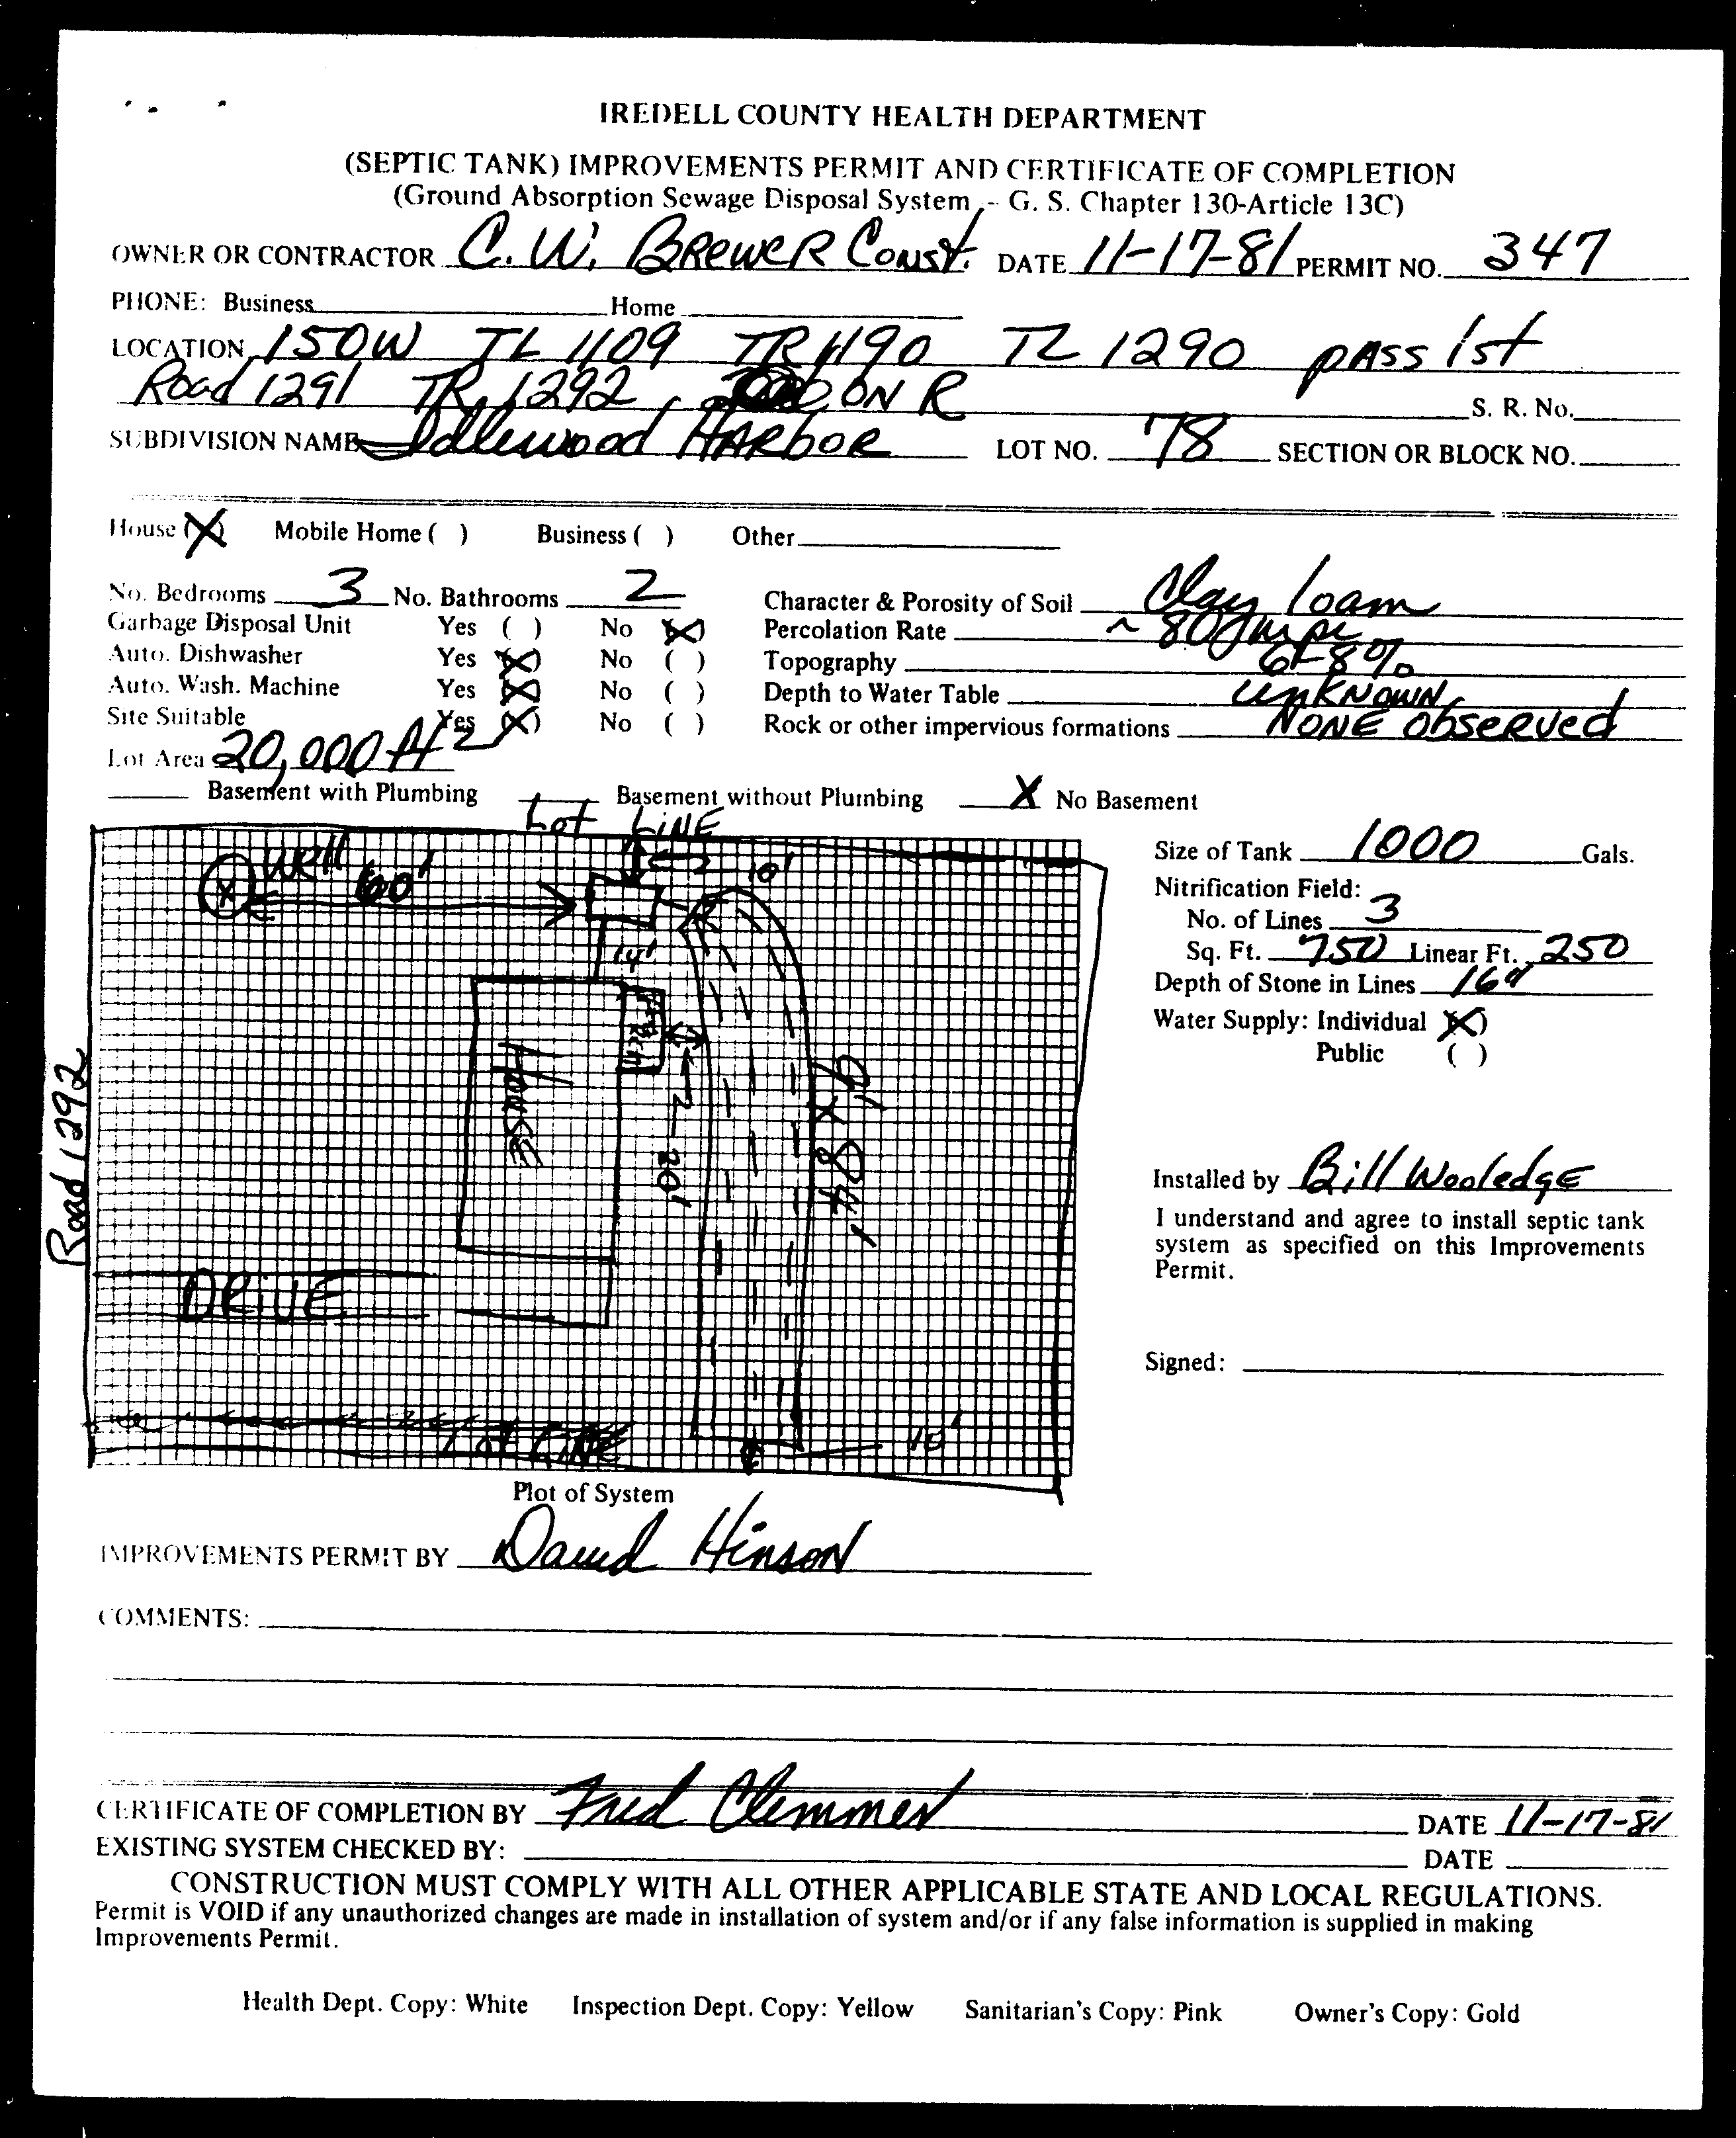 IREDELL COUNTY HEALTH DEPARTMENT
(SEPTIC TANK) IMPROVEMENTS PERMIT AND CERTIFICATE OF COMPLETION
(Ground Absorption Sewage Disposal System - G. S. Chapter 130-Article 13C)
OWNER OR CONTRACTOR C. W. BREWER CONST. DATE 11-17-81 PERMIT NO. 347
PHONE: Business Home
LOCATION 150W TL 1109 TR 1190 TL 1290 PASS 1st
Road 1291 TR 1292 ON R S. R. No.
SUBDIVISION NAME Idlewood HARbOR LOT NO. 78 SECTION OR BLOCK NO.
House (X) Mobile Home ( ) Business ( ) Other
No. Bedrooms 3 No. Bathrooms 2 Character & Porosity of Soil Clay loam
Garbage Disposal Unit Yes ( ) No (X) Percolation Rate ~ 80 mpi
Auto. Dishwasher Yes (X) No ( ) Topography 6-8%
Auto. Wash. Machine Yes (X) No ( ) Depth to Water Table UNKNOWN
Site Suitable Yes (X) No ( ) Rock or other impervious formations NONE ObSERVEd
Lot Area 20,000 ft2
Basement with Plumbing Basement without Plumbing X No Basement
Lot LiNE
Well 60' 10'
14'
House
20'
9' X 84'
Road 1292
DRiVE
Lot LiNE 10'
Plot of System
Size of Tank 1000 Gals.
Nitrification Field:
No. of Lines 3
Sq. Ft. 750 Linear Ft. 250
Depth of Stone in Lines 16"
Water Supply: Individual (X)
Public ( )
Installed by Bill Wooledge
I understand and agree to install septic tank
system as specified on this Improvements
Permit.
Signed:
IMPROVEMENTS PERMIT BY David Hinson
COMMENTS:
CERTIFICATE OF COMPLETION BY Fred Clemmer DATE 11-17-81
EXISTING SYSTEM CHECKED BY: DATE
CONSTRUCTION MUST COMPLY WITH ALL OTHER APPLICABLE STATE AND LOCAL REGULATIONS.
Permit is VOID if any unauthorized changes are made in installation of system and/or if any false information is supplied in making
Improvements Permit.
Health Dept. Copy: White Inspection Dept. Copy: Yellow Sanitarian's Copy: Pink Owner's Copy: Gold